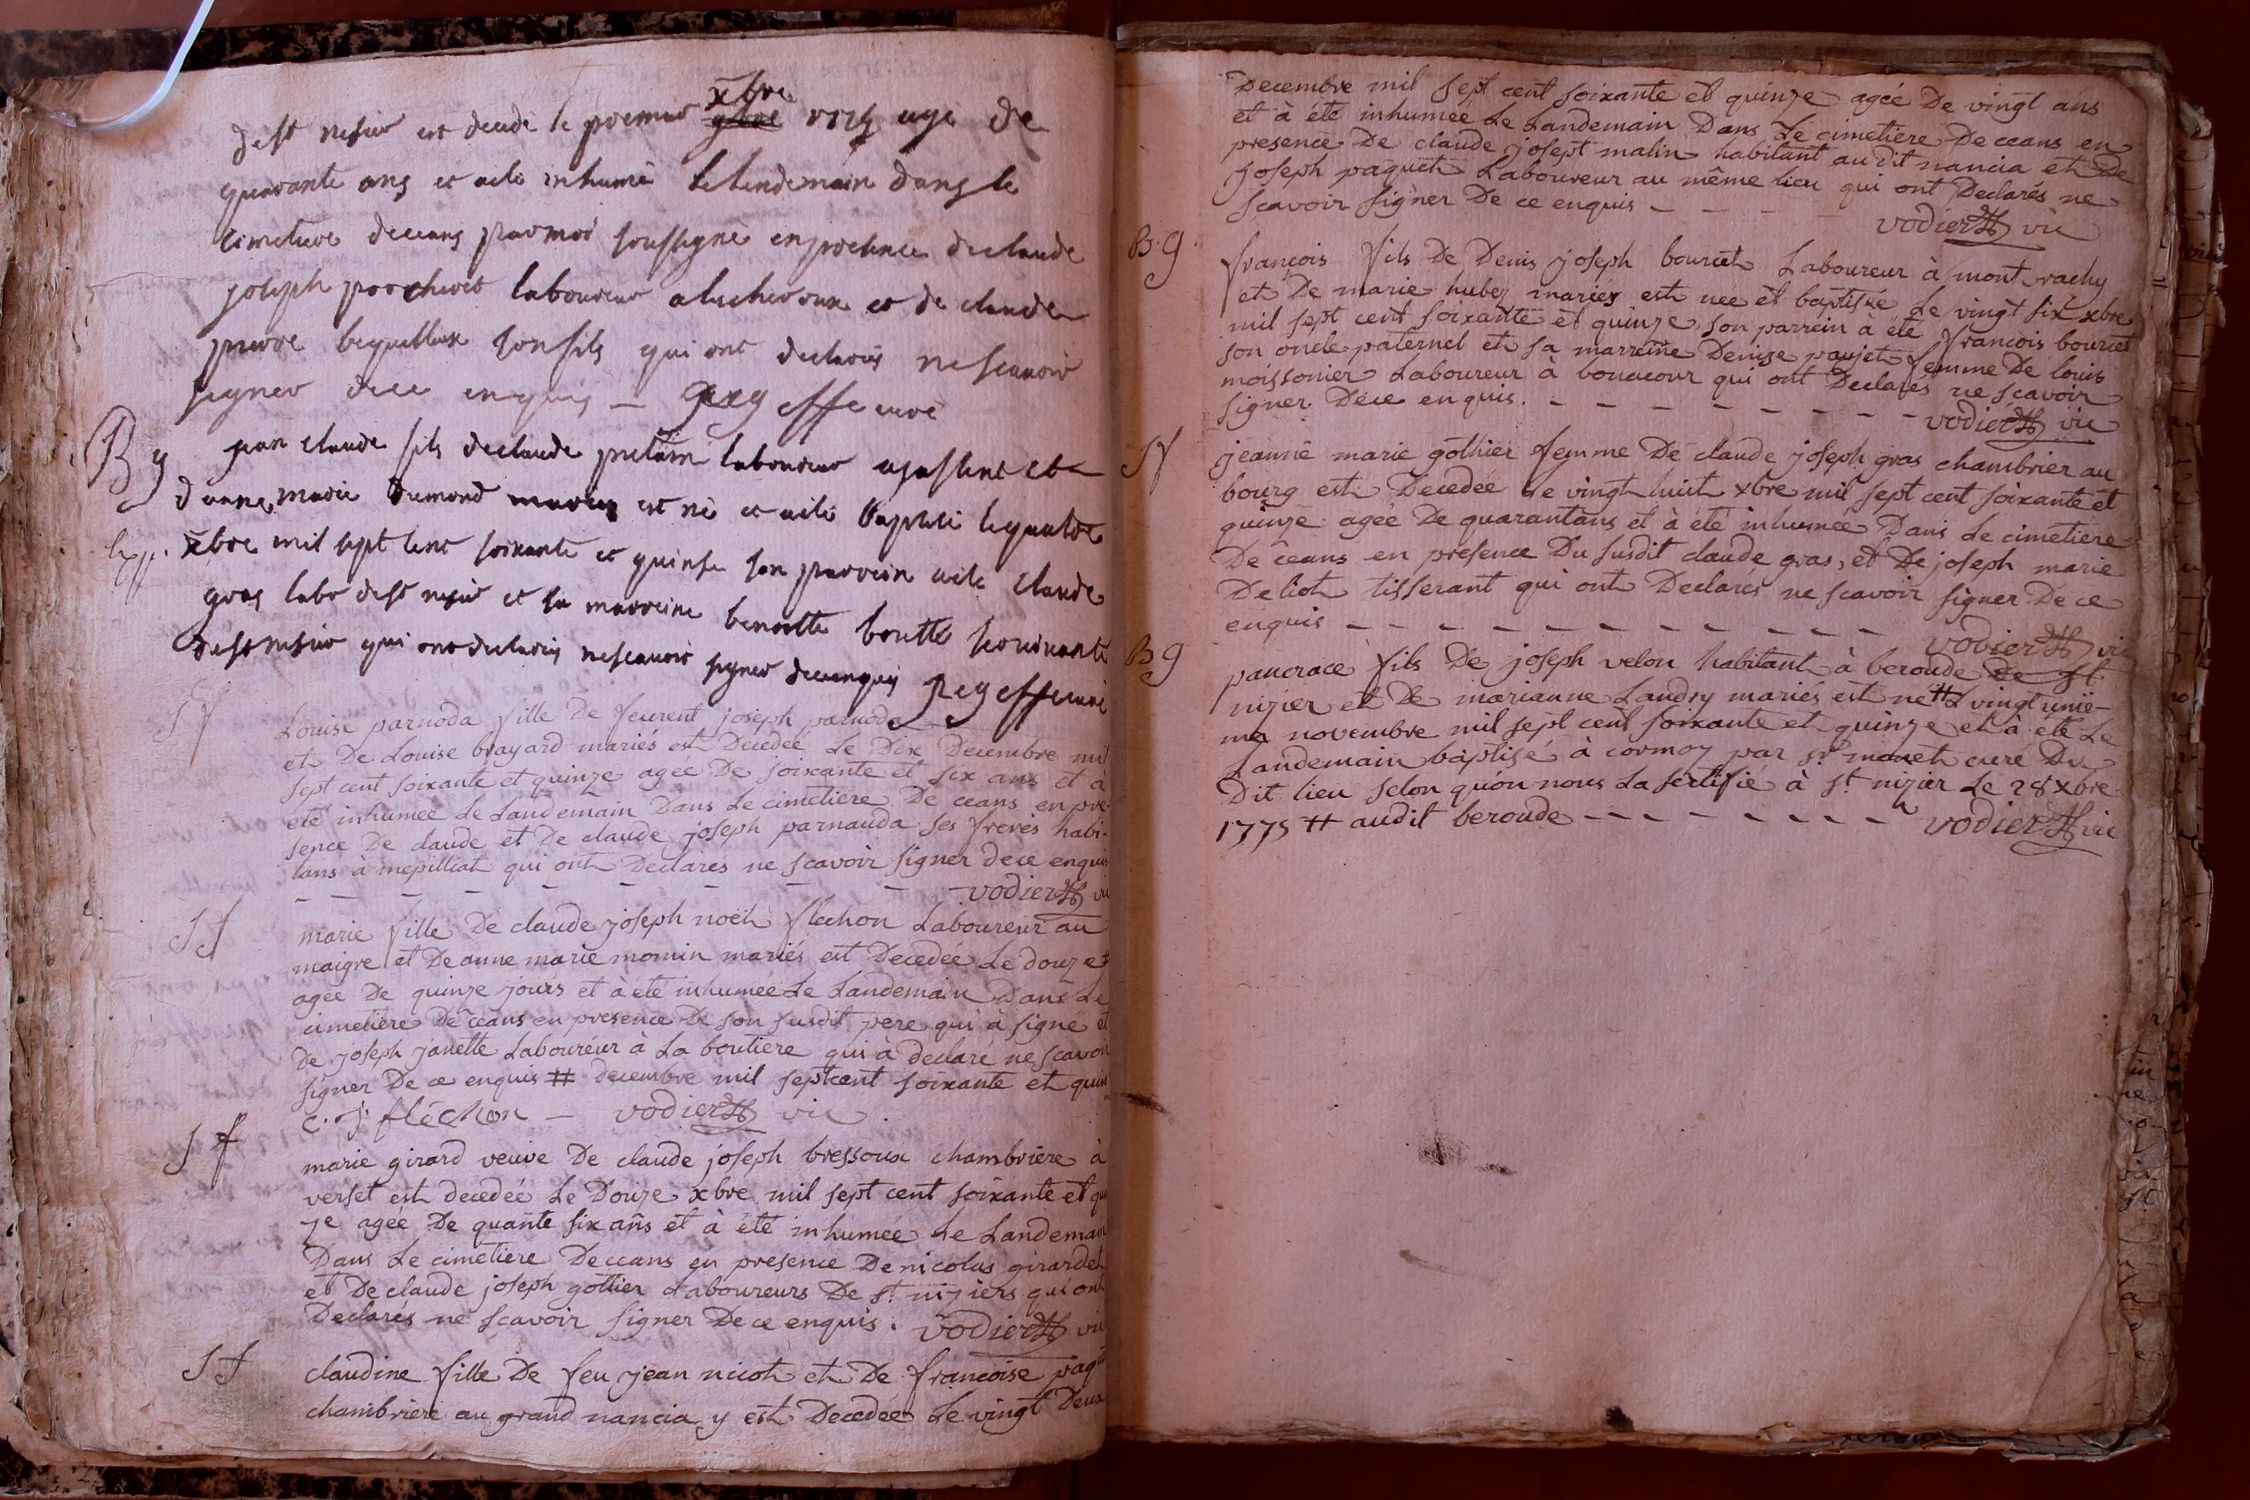 de st nisier est decede le premier xbre 1775 age de
quarante ans et a ete inhumé le lendemain dans le
cimetiere de ceans par moi soussigné en presence de claude
joseph laboureur et de claude
pierre son fils qui ont declarés ne scavoir
signer de ce enquis — curé
B g jean claude fils de claude laboureur et
d'anne marie dumond mariés est né et a été baptisé le quatre
xbre mil sept cent soixante et quinze son parrein a ete claude
gras labr de st nisier et sa marreine benoitte servante
de st nisier qui ont declarés ne scavoir signer de ce enquis curé
S f Louise parnoda fille De feurent joseph parnoda
et De Louise brayard mariés est Decedée Le Dix Decembre mil
sept cent soixante et quinze agée De soixante et six ans et à
été inhumée Le Landemain Dans Le cimetiere De ceans en pre-
sence De claude et De claude joseph parnauda ses freres habi-
tans à mepilliat qui ont Declares ne scavoir signer De ce enquis
— — — — — — — — vodier vic
S f marie fille De claude joseph noël fléchon Laboureur au
maigre et De anne marie momin mariés est Decedée Le douze #
agée De quinze jours et à été inhumée Le Landemain Dans Le
cimetiere De ceans en presence De son susdit pere qui à signé et
De joseph janette Laboureur à La boutiere qui à declaré ne scavoir
signer De ce enquis # decembre mil sept cent soixante et quin
c. j. fléchon — vodier vic
S f marie girard veuve De claude joseph bressoux chambriere à
verset est decedée Le Douze xbre mil sept cent soixante et quin
ze agée De quarte six ans et à été inhumée Le Landemain
Dans Le cimetiere De ceans en presence De nicolas girardet
et De claude joseph gottier Laboureurs De st niziers qui ont
Declarés ne scavoir signer De ce enquis . vodier vic
S f claudine fille De feu jean nicot et De francoise paq
chambriere au grand nancia y est Decedée Le vingt Deux
Decembre mil sept cent soixante et quinze agée De vingt ans
et à été inhumée Le Landemain Dans Le cimetiere De ceans en
presence De claude josept malin habitant au dit nancia et De
joseph paquet Laboureur au même lieu qui ont Declarés ne
scavoir signer De ce enquis — — — vodier vic
B. g. francois fils De Denis joseph bourcet Laboureur à mont rachy
et De marie hubez mariez est nee et baptisée Le vingt six xbre
mil sept cent soixante et quinze, son parrein à été francois bourcet
son oncle paternel et sa marreine Denize paujet femme De louis
moissonier Laboureur à bonacour qui ont Declarés ne scavoir
signer De ce enquis. — — — — — — — vodier vic
S f jeanne marie gothier femme De claude joseph gras chambrier au
bourg est Decedée Le vingt huit xbre mil sept cent soixante et
quinze agée De quarantans et à été inhumée Dans Le cimetiere
De ceans en presence Du susdit claude gras, et De joseph marie
Deliot tisserant qui ont Declares ne scavoir signer De ce
enquis — — — — — — — — — vodier vic
B g pancrace fils De joseph velon habitant à beroude de st
nizier et De marianne Landry mariés est né # L vingt unié-
me novembre mil sept cent soixante et quinze et à été Le
Landemain baptisé à cormoz par sr monet curé Du
Dit lieu selon qu'on nous La sertifie à st nizier Le 28 xbre
1775 # audit beroude — — — — — — — vodier vic